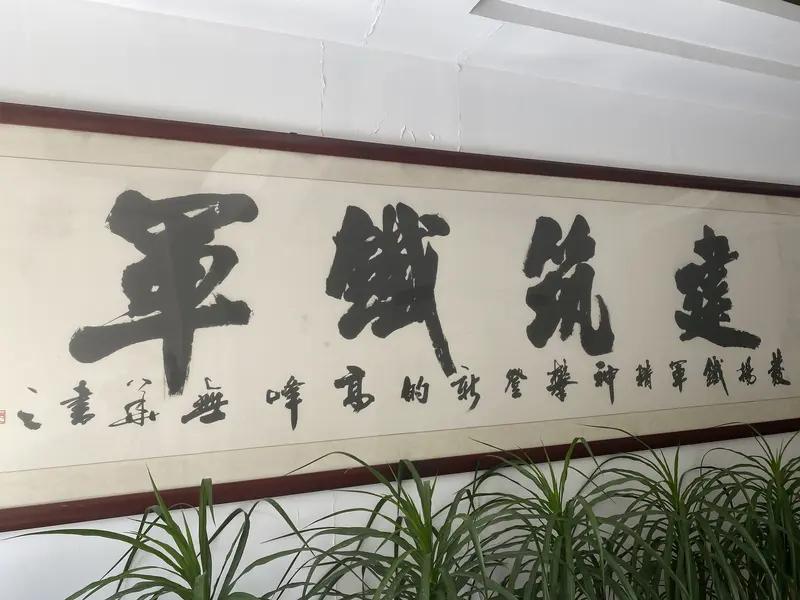 建筑鐵軍
發揚鐵軍精神攀登新的高峰無華書之